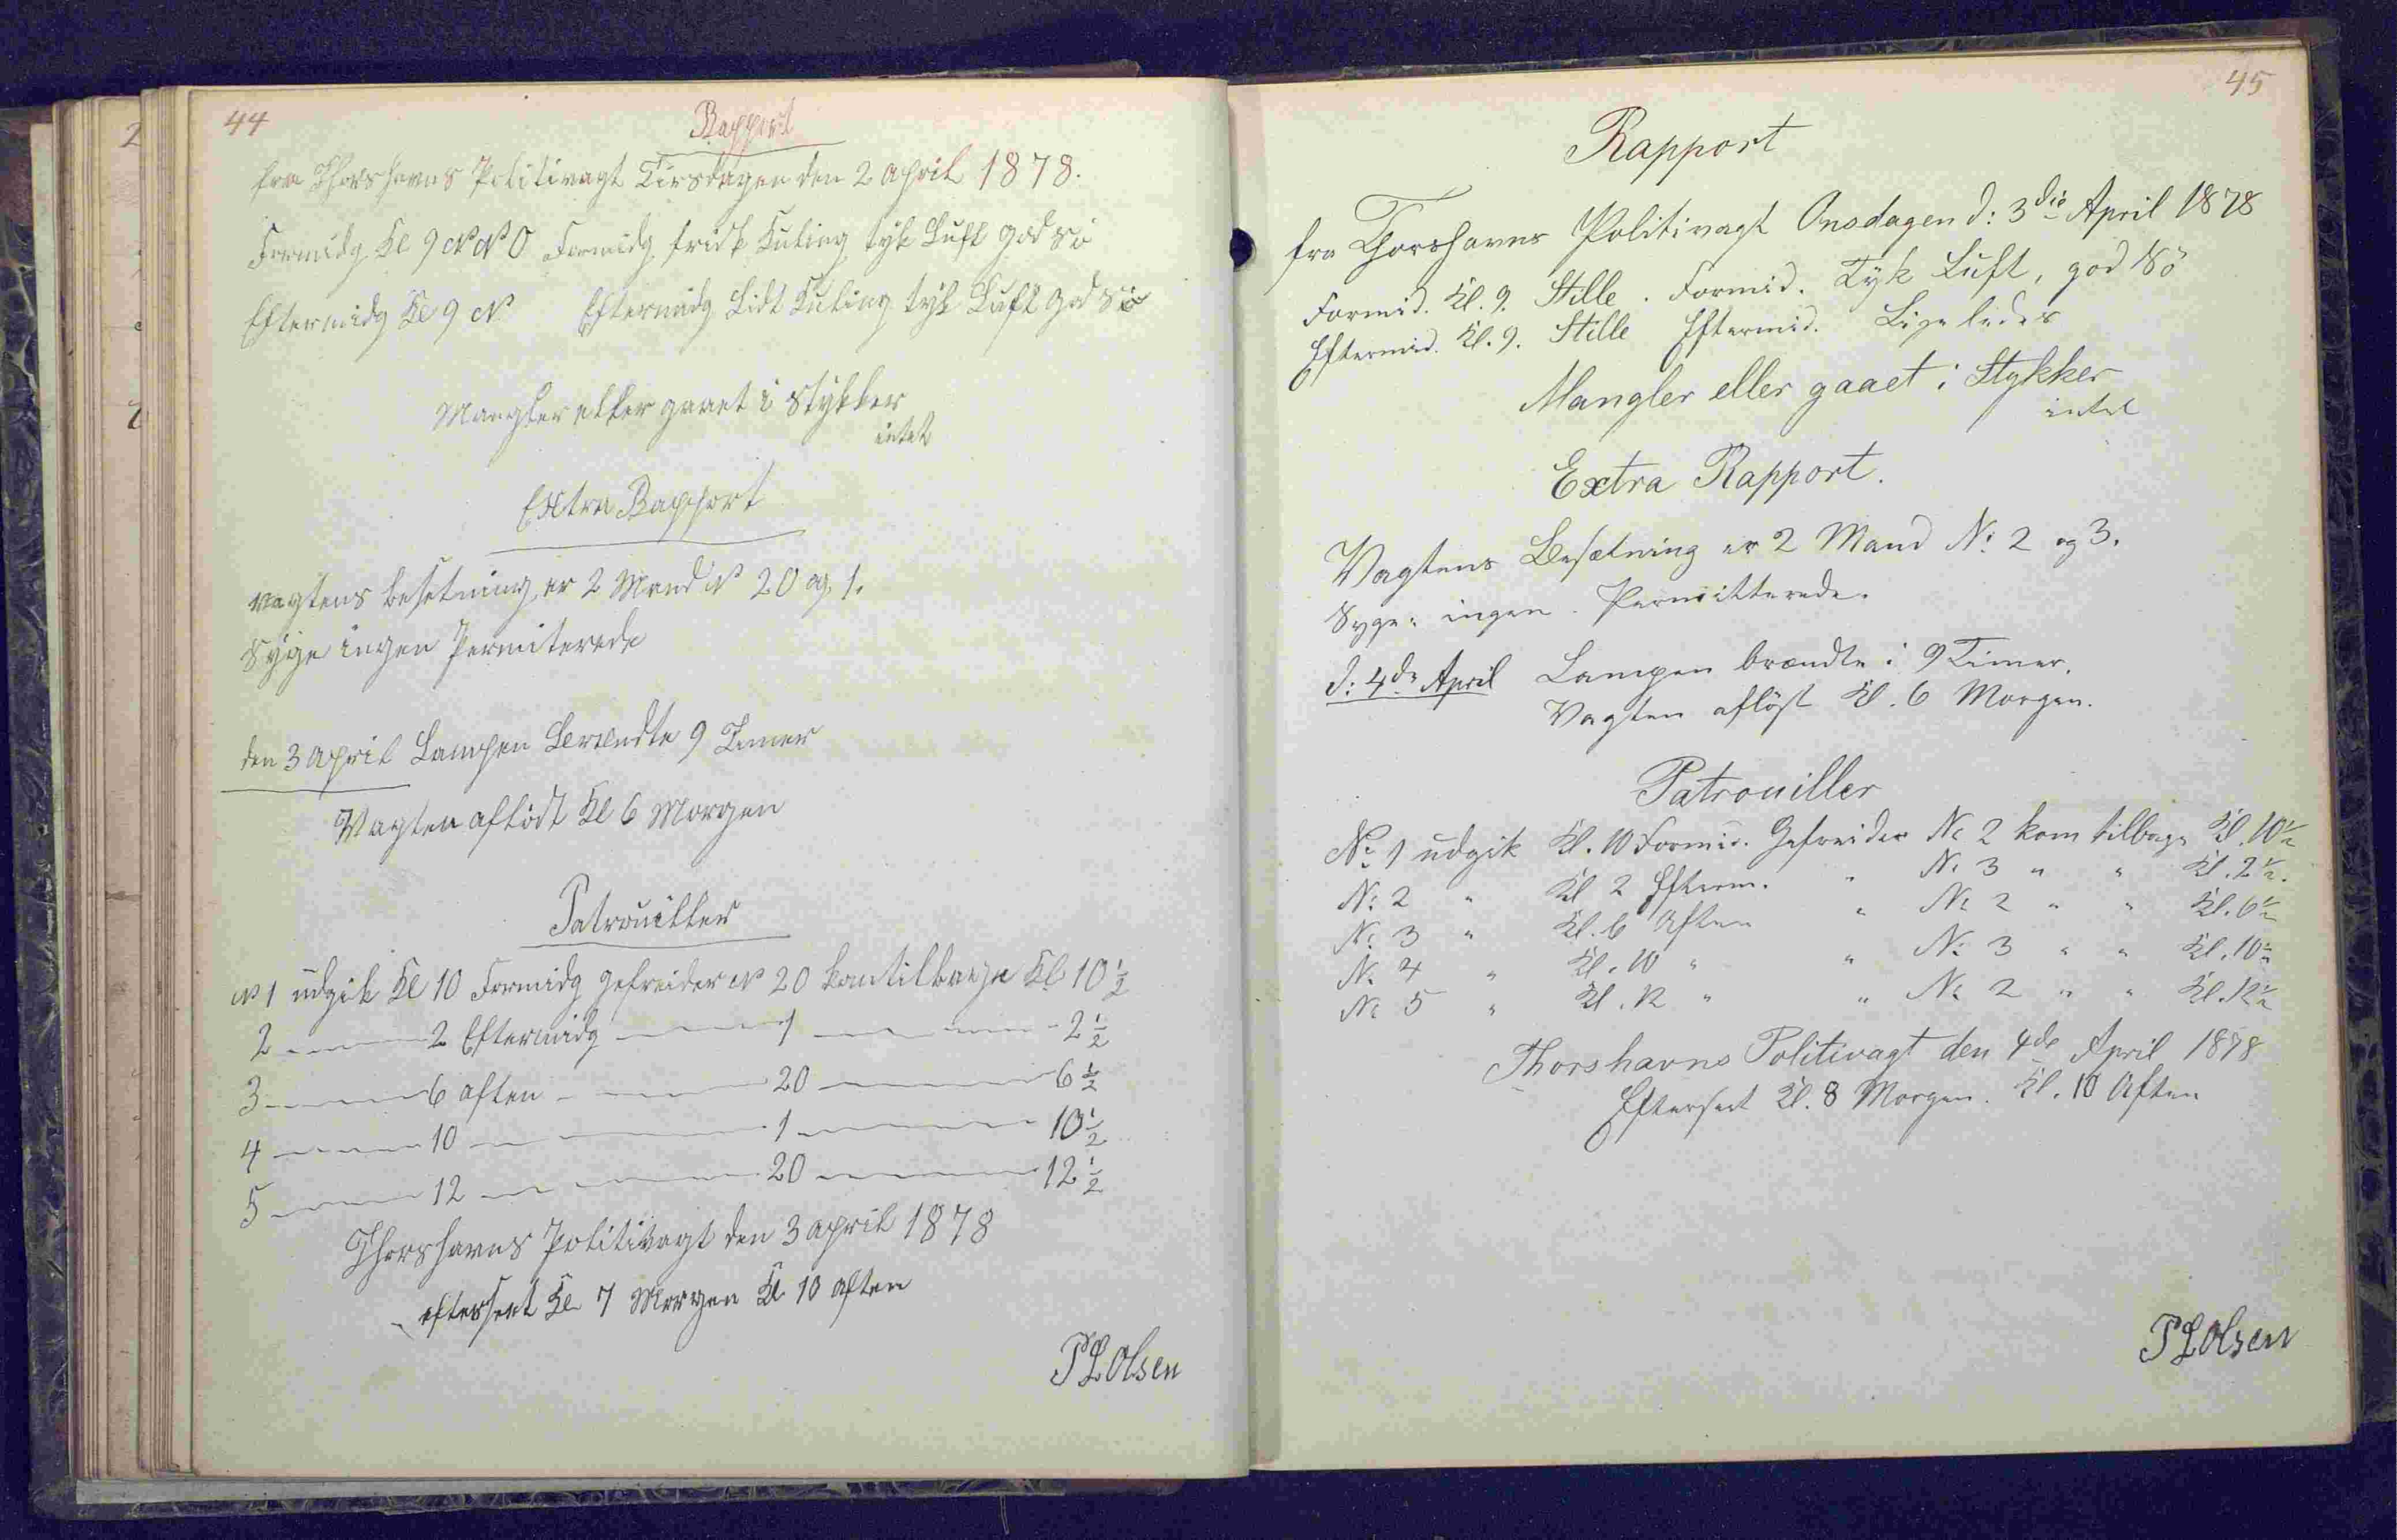 44
Rapport
fra Thorshavns Politivagt Tirsdagen den 2 april 1878.
Formidg Kl 9 N N O Formidg frisk Kuling tyk Luft god sø
Eftermidg Kl 9 N Eftermidg Lidt Kuling tyk Luft god sø
Mangler eller gaaet i Stykker
intet
Extra Rapport
vagtens besetning er 2 Mand N 20 og 1.
Syge ingen Permiterede
den 3 april Lampen Brændte 9 Timer
Vagten afløst Kl 6 Morgen
Patrouiller
N 1 udgik Kl 10 Formidg gefreider N 20 kom tilbage Kl 10 1/2
2 — 2 Eftermidg — 1 — 2 1/2
3 — 6 aften — 20 — 6 1/2
4 — 10 — 1 — 10 1/2
5 — 12 — 20 — 12 1/2
Thorshavns Politivagt den 3 april 1878
efterseet Kl 7 Morgen Kl 10 aften
P L Olsen
45
Rapport
fra Thorshavns Politivagt Onsdagen d: 3die April 1878
Formid. Kl. 9. Stille. Formid. Tyk Luft, god Sø
Eftermid. Kl. 9. Stille Eftermid. Ligeledes
Mangler eller gaaet i Stykker
intet
Extra Rapport.
Vagtens Besætning er 2 Mand N: 2 og 3.
Syge: ingen. Permitterede.
d: 4de April Lampen brændte i 9 Timer.
Vagten afløst Kl. 6 Morgen.
Patrouiller
N: 1 udgik Kl. 10 Formid. Gefreider N: 2 kom tilbage Kl. 10 1/2
N: 2 " Kl 2 Efterm. " N: 3 " " Kl. 2 1/2.
N: 3 " Kl. 6 Aften " N: 2 " " Kl. 6 1/2
N: 4 " Kl. 10 " " N: 3 " " Kl. 10 1/2
N: 5 " Kl. 12 " " N: 2 " " Kl. 12 1/2
Thorshavns Politivagt den 4de April 1878
Efterseet Kl. 8 Morgen. Kl. 10 Aften
P L Olsen